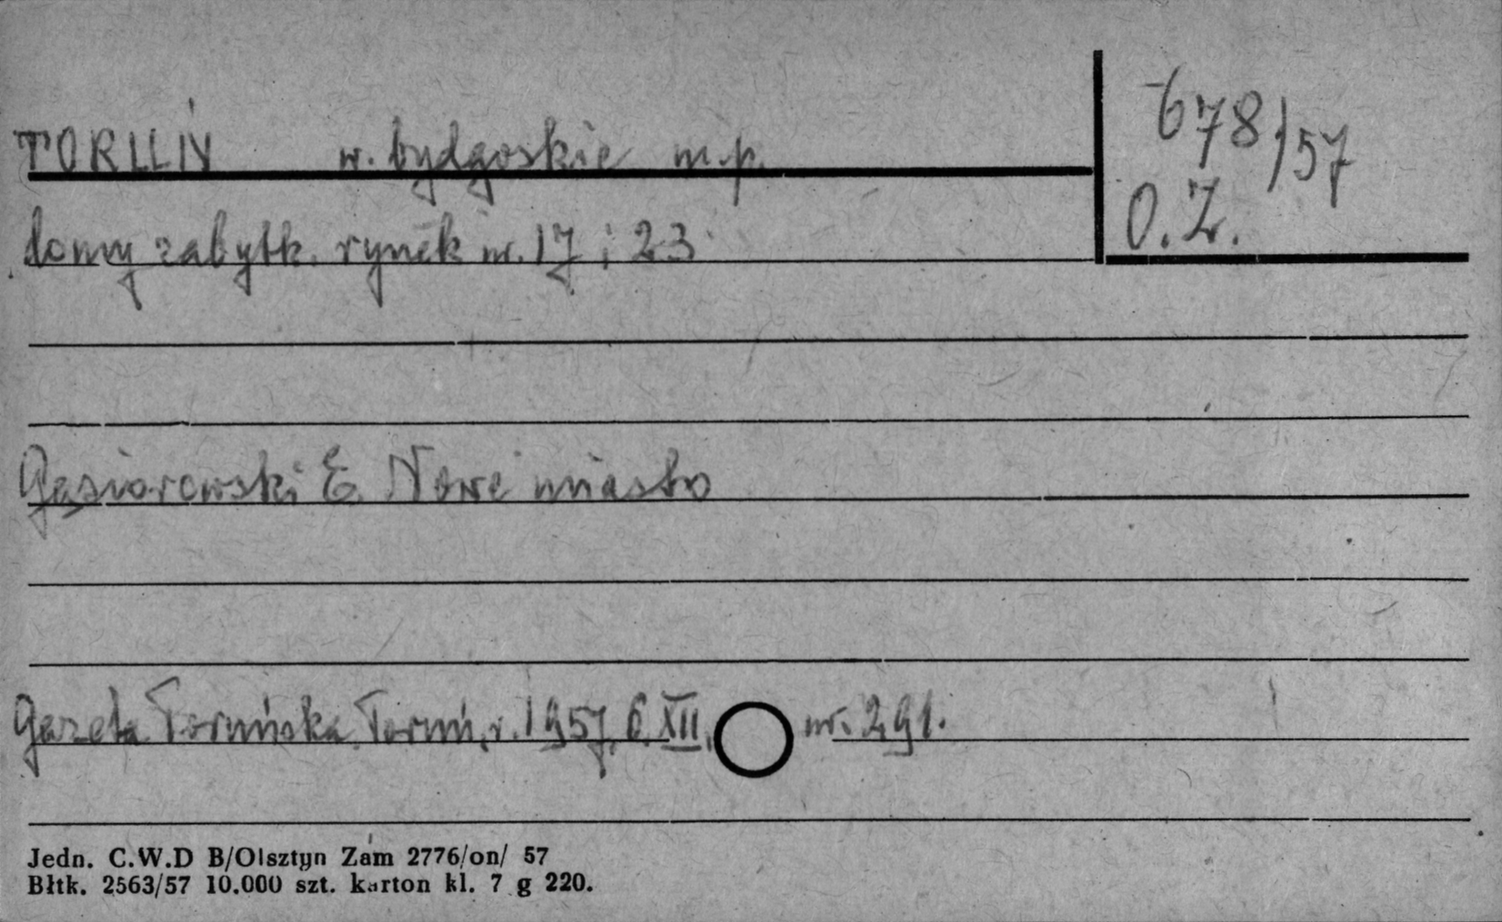 TORUŃ w. bydgoskie m.p.
678/57
O.Z.
domy zabytk. rynek nr. 17 i 23
Gąsiorowski E. Nowe miasto
Gazeta Toruńska. Toruń, r. 1957, 6 XII, nr. 291.
Jedn. C.W.D B/Olsztyn Zam 2776/on/ 57
Błtk. 2563/57 10.000 szt. karton kl. 7 g 220.